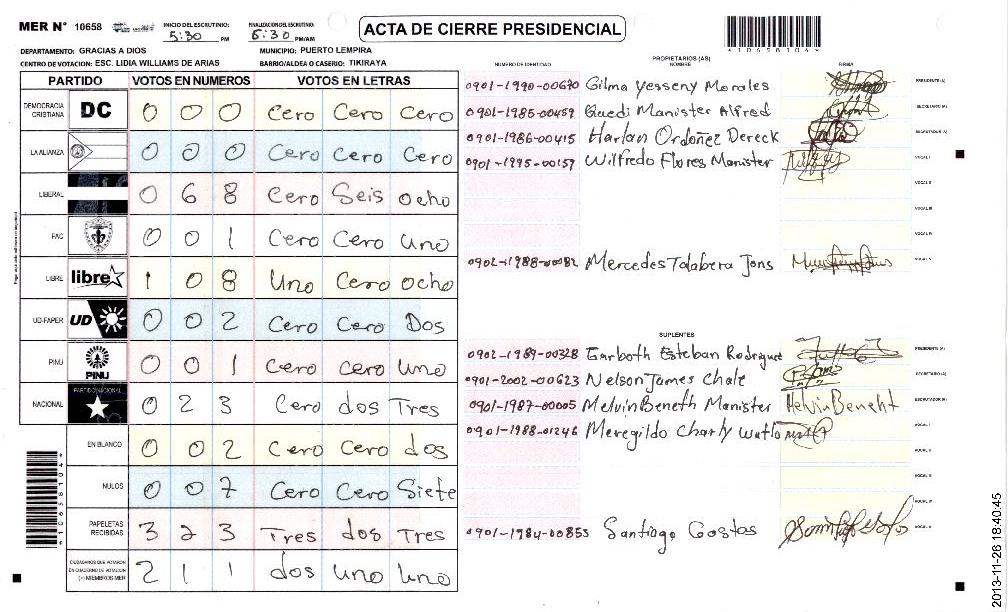 MER N° 10658
INICIO DEL ESCRUTINIO: 5:30 PM
FINALIZACION DEL ESCRUTINIO: 6:30 PM/AM
ACTA DE CIERRE PRESIDENCIAL
DEPARTAMENTO: GRACIAS A DIOS
MUNICIPIO: PUERTO LEMPIRA
CENTRO DE VOTACION: ESC. LIDIA WILLIAMS DE ARIAS
BARRIO/ALDEA O CASERIO: TIKIRAYA
PARTIDO VOTOS EN NUMEROS VOTOS EN LETRAS
DEMOCRACIA CRISTIANA DC 0 0 0 Cero Cero Cero
LA ALIANZA 0 0 0 Cero Cero Cero
LIBERAL 0 6 8 Cero Seis ocho
PAC 0 0 1 Cero Cero uno
LIBRE libre 1 0 8 Uno Cero ocho
UD-FAPER UD 0 0 2 Cero Cero Dos
PINU PINU 0 0 1 Cero Cero uno
NACIONAL PARTIDO NACIONAL 0 2 3 Cero dos Tres
EN BLANCO 0 0 2 Cero Cero dos
NULOS 0 0 7 Cero Cero Siete
PAPELETAS RECIBIDAS 3 2 3 Tres dos Tres
CIUDADANOS QUE VOTARON EN CUADERNO DE VOTACION (+) MIEMBROS MER 2 1 1 dos uno uno
PROPIETARIOS (AS)
NUMERO DE IDENTIDAD NOMBRE FIRMA
0901-1990-00670 Gilma Yesseny Morales PRESIDENTE (A)
0901-1985-00459 Guedi Manister Alfred SECRETARIO (A)
0901-1986-00415 Harlan Ordoñez Dereck ESCRUTADOR (A)
0901-1995-00157 Wilfredo Flores Manister VOCAL I
VOCAL II
VOCAL III
VOCAL IV
0902-1988-00082 Mercedes Talabera Jons VOCAL V
SUPLENTES
0902-1989-00328 Garboth Esteban Rodrigue PRESIDENTE (A)
0901-2002-00623 Nelson James Chale SECRETARIO (A)
0901-1987-00005 Melvin Beneth Manister Melvin Beneht ESCRUTADOR (A)
0901-1988-01246 Meregildo Charly Watlo VOCAL I
VOCAL II
VOCAL III
VOCAL IV
0901-1984-00855 Santiago Gostas VOCAL V
2013-11-26 18:40:45